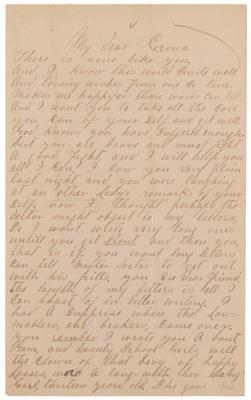 My dear Corona
There is none like you,
And I know this world quite well
And loving wishes from one so true.
Makes me happyer than words can tell.
And I want you to take all the care
you can of your self and get well.
God knows you have suffered enough
but you are brave and must fight
A good fight, and I will help you
all I can, I saw you very plain
last night and you were laughing
at an other Lady's remarks of your
self, now I thought perhaps the
doctor might object to my letters,
So I wont write very long ones
untill you get Stout, and then you
that is if you want long letters
can tell Mister doctor to get out
with his pills. you see dear friend,
the length of my letters is all I
can boast of in letter writing. I
had A Surprise when the Law-
makers, and brakers, Came over.
you remember I wrote you A bout
and twenty School Girls well
the Clown of that bevy of happy
Lasses, was a long with her
Girl, thirteen years old. She gave me